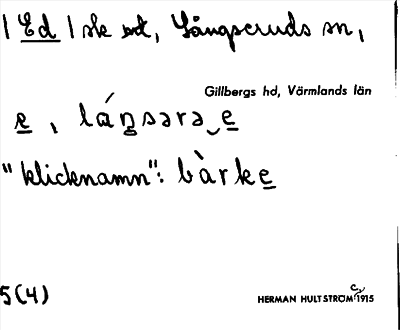 | Ed | sk o, Långseruds sn,
Gillbergs hd, Värmlands län
e, láŋsərə‿e
"klicknamn": bàrke
5(4)
HERMAN HULTSTRÖM c. 1915